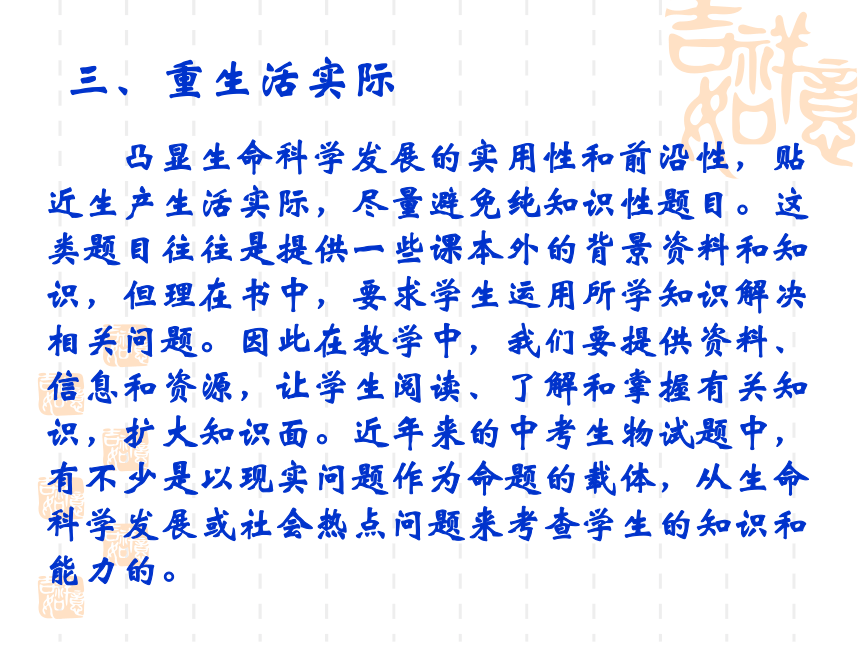 三、重生活实际
凸显生命科学发展的实用性和前沿性，贴
近生产生活实际，尽量避免纯知识性题目。这
类题目往往是提供一些课本外的背景资料和知
识，但理在书中，要求学生运用所学知识解决
相关问题。因此在教学中，我们要提供资料、
信息和资源，让学生阅读、了解和掌握有关知
识，扩大知识面。近年来的中考生物试题中，
有不少是以现实问题作为命题的载体，从生命
科学发展或社会热点问题来考查学生的知识和
能力的。
吉祥如意
吉祥如意
吉祥如意
吉祥如意
吉祥如意
吉祥如意
吉祥如意